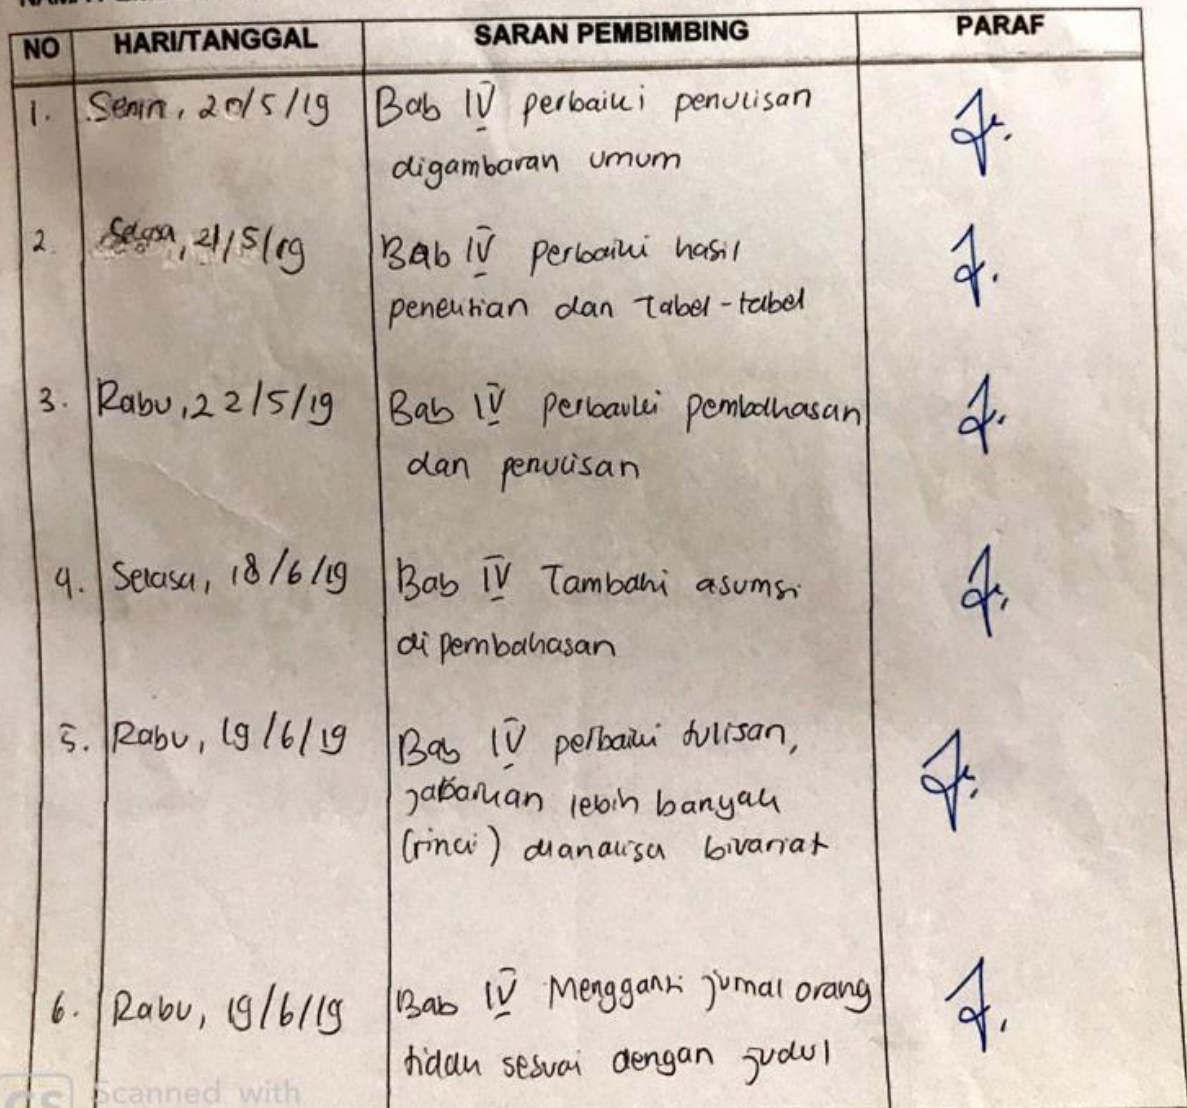 NO HARI/TANGGAL SARAN PEMBIMBING PARAF
1. Senin, 20/5/19 Bab IV perbaiki penulisan
digambaran umum
2. Selasa, 21/5/19 Bab IV perbaiki hasil
penelitian dan Tabel-tabel
3. Rabu, 22/5/19 Bab IV perbaiki pembahasan
dan penulisan
4. Selasa, 18/6/19 Bab IV Tambahi asumsi
di pembahasan
5. Rabu, 19/6/19 Bab IV perbaiki tulisan,
jabarkan lebih banyak
(rinci) dianalisa bivariat
6. Rabu, 19/6/19 Bab IV Mengganti jurnal orang
tidak sesuai dengan judul
CS Scanned with